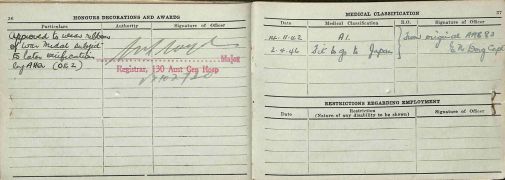 36
HONOURS DECORATIONS AND AWARDS
Particulars Authority Signature of Officer
Approved to wear ribbon
of War Medal subject
to later verification
by AHQ (OE2)
Major
Registrar, 130 Aust Gen Hosp
37
MEDICAL CLASSIFICATION
Date Medical Classification R.O. Signature of Officer
14.11.42 A1. from original AAB 83
2.4.46 Fit to go to Japan Capt
RESTRICTIONS REGARDING EMPLOYMENT
Date Restriction (Nature of any disability to be shown) Signature of Officer